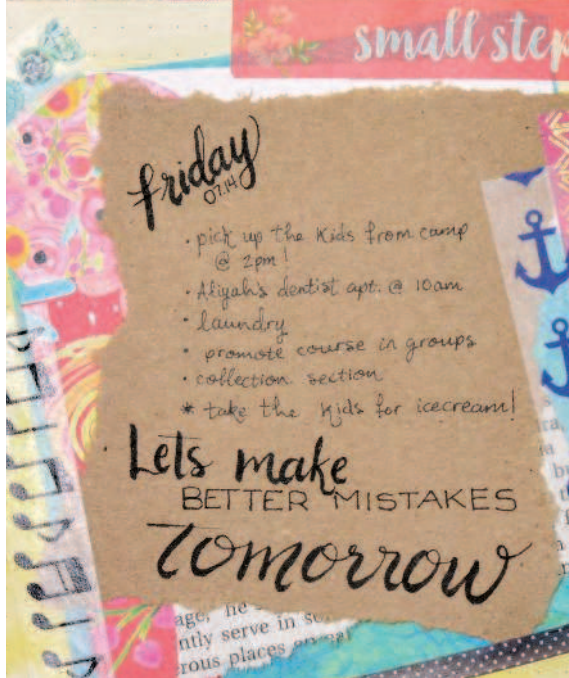 small ste
friday
07.14
• pick up the kids from camp
@ 2pm!
• Aliyah's dentist apt. @ 10am
• laundry
• promote course in groups
• collection section
* take the kids for icecream!
Lets make
BETTER MISTAKES
Tomorrow
age, he
ntly serve in
rous places